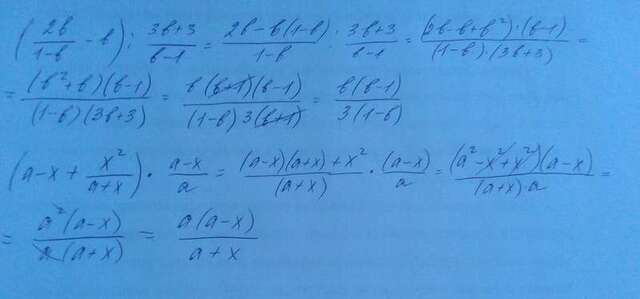 (2b/(1-b) - b) : (3b+3)/(b-1) = (2b-b(1-b))/(1-b) : (3b+3)/(b-1) = ((2b-b+b²)·(b-1))/((1-b)·(3b+3)) =
= ((b²+b)(b-1))/((1-b)(3b+3)) = (b(b+1)(b-1))/((1-b)3(b+1)) = (b(b-1))/(3(1-b))
(a-x + x²/(a+x)) · (a-x)/a = ((a-x)(a+x)+x²)/(a+x) · (a-x)/a = ((a²-x²+x²)(a-x))/((a+x)·a) =
= (a²(a-x))/(a(a+x)) = (a(a-x))/(a+x)